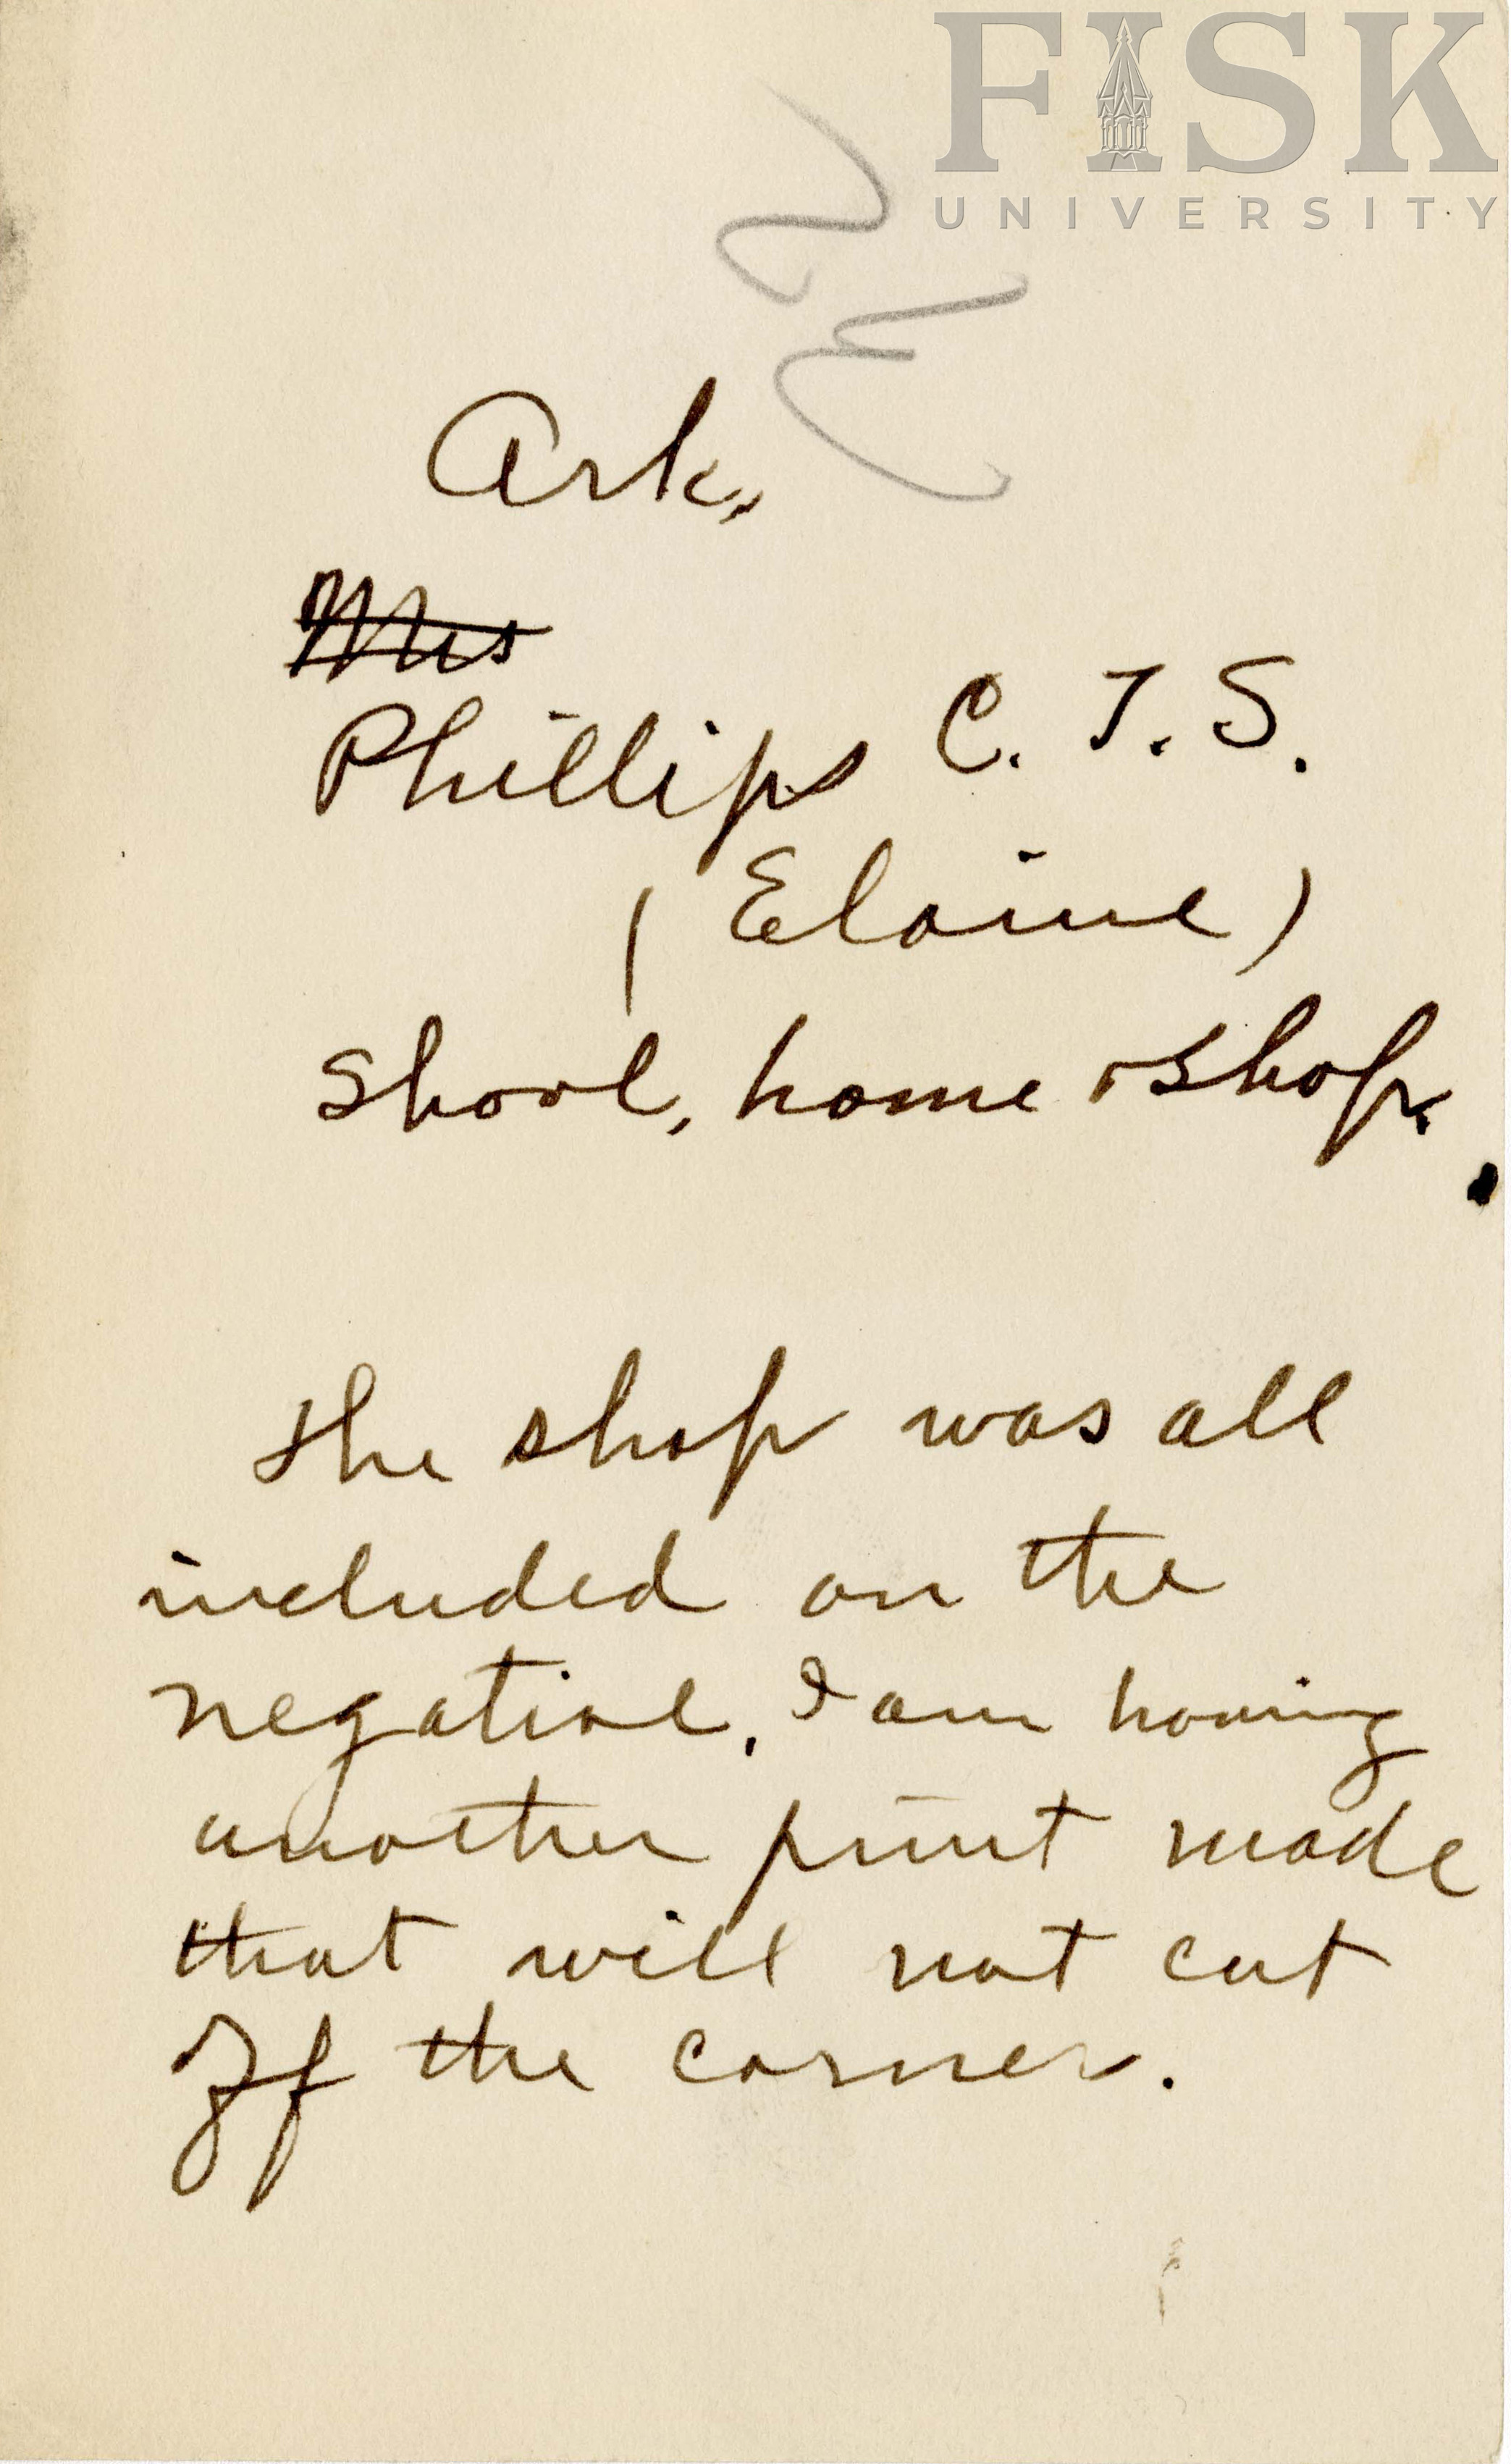 FISK
UNIVERSITY
Ark.
Mrs
Phillips C. T. S.
(Elaine)
Shool, home & shop.
the shop was all
included on the
negative. I am having
another print made
that will not cut
off the corner.